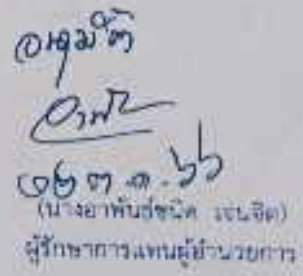 อนุมัติ
๓ ต.ค. ๖๖
(นางอาพันธ์ชนิต เจนจิต)
ผู้รักษาการแทนผู้อำนวยการ